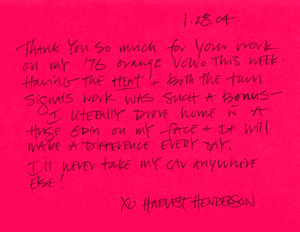 1.28.04
Thank you so much for your work
on my '76 orange Volvo this week.
Having the HEAT + both the turn
signals work was such a bonus-
I literally drove home w a
huge grin on my face + it will
make a difference every day.
I'll never take my car anywhere
else!
XO Harvest Henderson